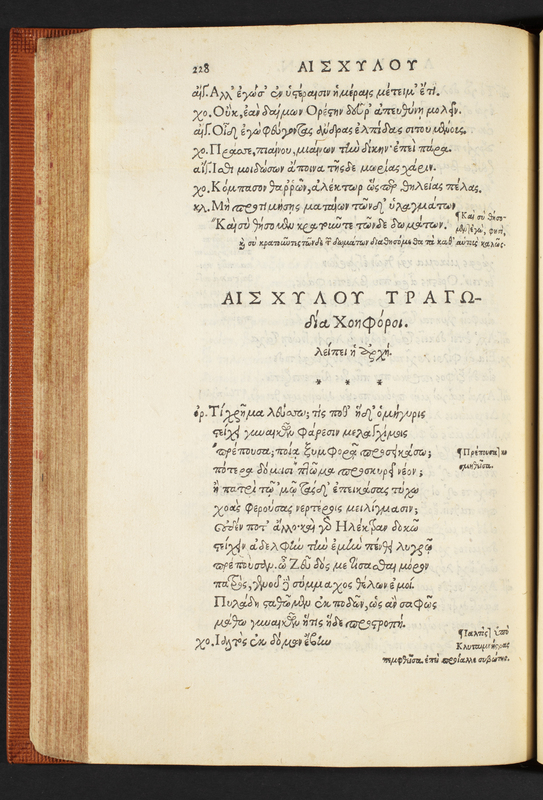 228 ΑΙΣΧΥΛΟΥ
αἴγ. Αλλ' ἐγώ σ' ἐν ὑστέραισιν ἡμέραις μέτειμ' ἔτι.
χο. Οὔκ, ἐὰν δαίμων Ορέστην δεῦρ' ἀπευθύνῃ μολεῖν.
αἴγ. Οἶδ' ἐγὼ φεύγοντας ἄνδρας ἐλπίδας σιτουμένους.
χο. Πρᾶσσε, πιαίνου, μιαίνων τὴν δίκην· ἐπεὶ πάρα.
αἴγ. Ισθι μοι δώσων ἄποινα τῆσδε μωρίας χάριν.
χο. Κόμπασον θαρρῶν, ἀλέκτωρ ὥσπερ θηλείας πέλας.
κλ. Μὴ προτιμήσῃς ματαίων τῶνδ' ὑλαγμάτων
Καὶ σὺ θήσομεν κρατοῦντε τῶνδε δωμάτων.
¶ Καὶ σὺ θήσο-
μεν] ἐγώ, φησὶ,
καὶ σὺ κρατοῦντες τῶνδε τῶν δωμάτων διαθησόμεθα τὰ καθ' αὑτοὺς καλῶς.
ΑΙΣΧΥΛΟΥ ΤΡΑΓΩ-
δία Χοηφόροι.
λείπει ἡ ἀρχή.
* * *
ὀρ. Τί χρῆμα λεύσσω; τίς ποθ' ἥδ' ὁμήγυρις
στείχει γυναικῶν φάρεσιν μελαγχίμοις
πρέπουσα; ποίᾳ ξυμφορᾷ προσεικάσω;
πότερα δόμοισι πῆμα προσκυρεῖ νέον;
ἢ πατρὶ τῷ 'μῷ τάσδ' ἐπεικάσας τύχω
χοὰς φερούσας νερτέροις μειλίγμασιν;
οὐδέν ποτ' ἄλλο· καὶ γὰρ Ηλέκτραν δοκῶ
στείχειν ἀδελφὴν τὴν ἐμὴν πένθει λυγρῷ
πρέπουσαν. ὦ Ζεῦ δός με τίσασθαι μόρον
πατρός, γενοῦ δὲ σύμμαχος θέλων ἐμοί.
Πυλάδη σταθῶμεν ἐκποδὼν, ὡς ἂν σαφῶς
μάθω γυναικῶν ἥτις ἥδε προστροπή.
χο. Ιαλτὸς ἐκ δόμων ἔβην
¶ Πρέπουσα]
¶ Ιαλτὸς] ὑπὸ
Κλυταιμήστρας
πεμφθεῖσα.